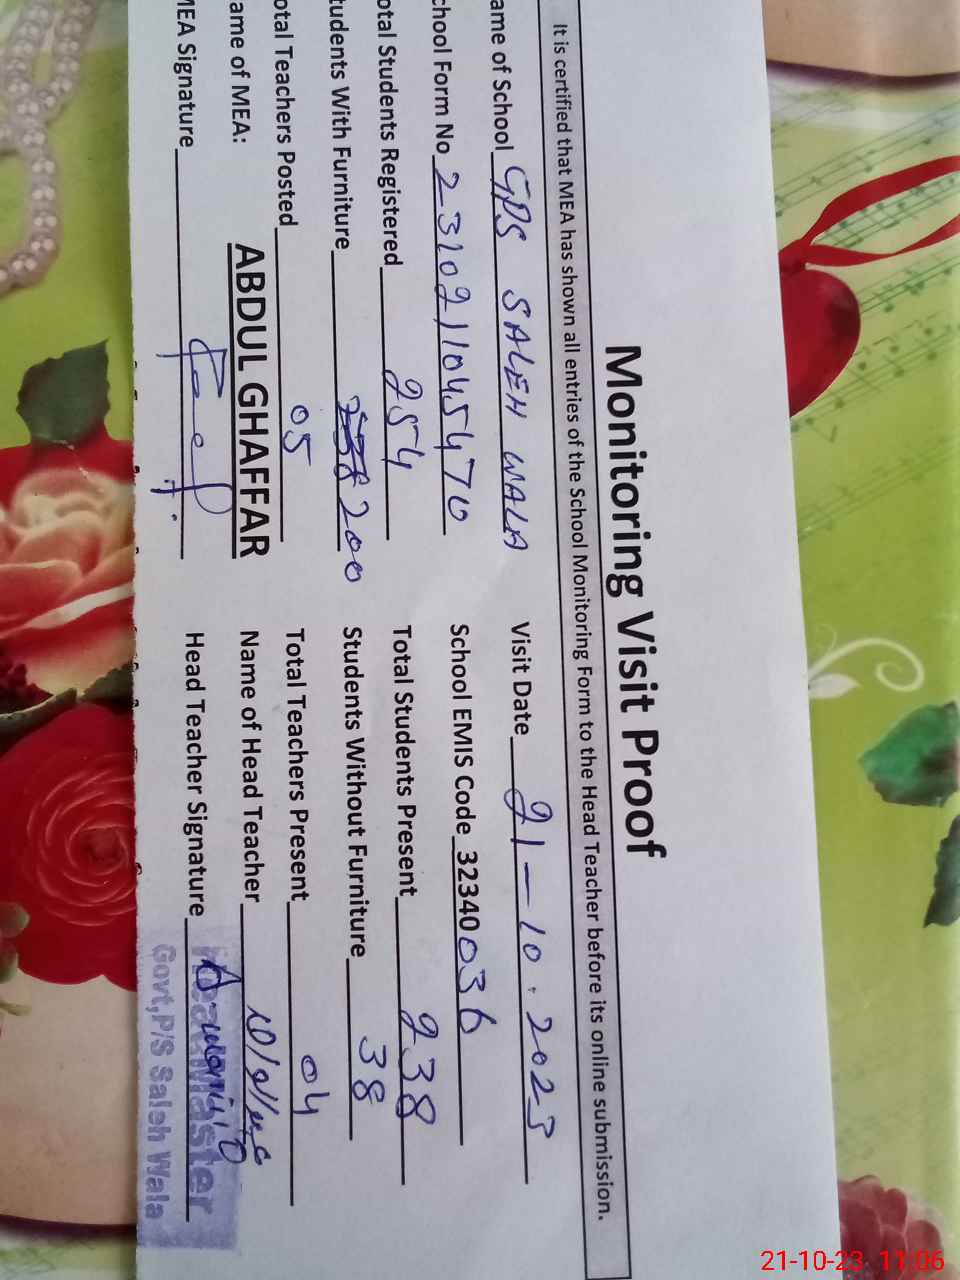 Monitoring Visit Proof
It is certified that MEA has shown all entries of the School Monitoring Form to the Head Teacher before its online submission.
ame of School GPS SALEH WALA Visit Date 21-10.2023
chool Form No 2310211045470 School EMIS Code 32340036
otal Students Registered 254 Total Students Present 238
tudents With Furniture 200 Students Without Furniture 38
otal Teachers Posted 05 Total Teachers Present 04
ame of MEA: ABDUL GHAFFAR Name of Head Teacher
MEA Signature Head Teacher Signature
HeadMaster
Govt,P/S Saleh Wala
21-10-23 11:06